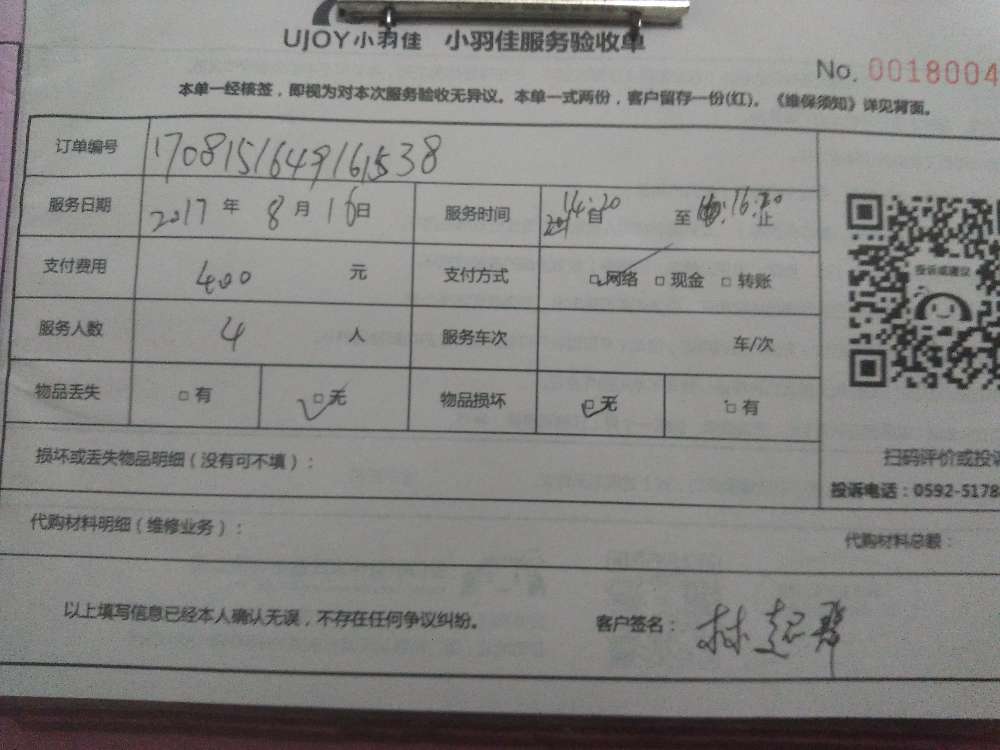 UJOY小羽佳 小羽佳服务验收单
No. 0018004
本单一经核签，即视为对本次服务验收无异议。本单一式两份，客户留存一份(红)。《维保须知》详见背面。
订单编号 1708151649161538
服务日期 2017年 8月 16日 服务时间 14:20 自 至 16:20 止
支付费用 400 元 支付方式 □网络 □现金 □转账
投诉或建议
服务人数 4 人 服务车次 车/次
物品丢失 □有 □无 物品损坏 □无 □有
损坏或丢失物品明细（没有可不填）：
扫码评价或投诉
投诉电话：0592-5178
代购材料明细（维修业务）：
代购材料总额：
以上填写信息已经本人确认无误，不存在任何争议纠纷。 客户签名：林起